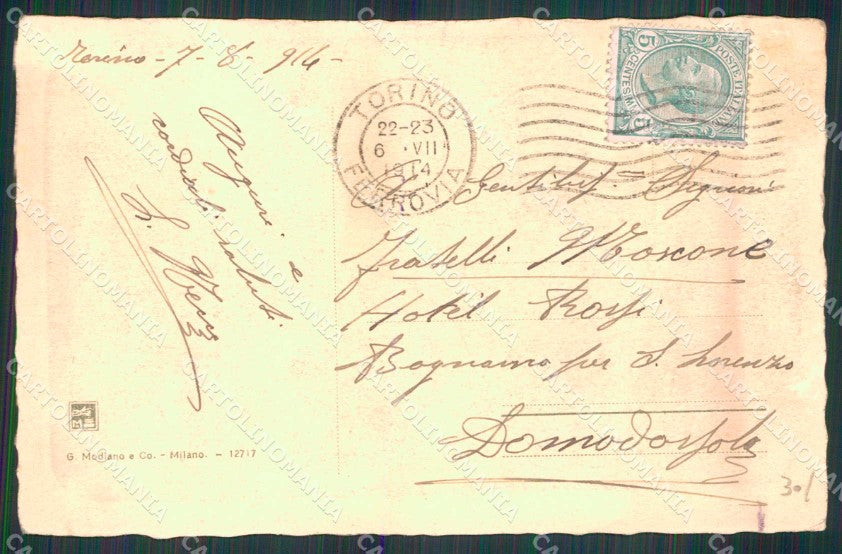 Torino - 7 - 8 - 914 -
Auguri e
cordiali saluti
TORINO
22-23
6 · VII
1914
FERROVIA
POSTE ITALIANE
5 CENTESIMI 5
Signori
Fratelli Moscone
Hotel Rossi
Bognanco per S. Lorenzo
Domodossola
G. Modiano e Co. - Milano. - 12717
30/
CARTOLINOMANIA